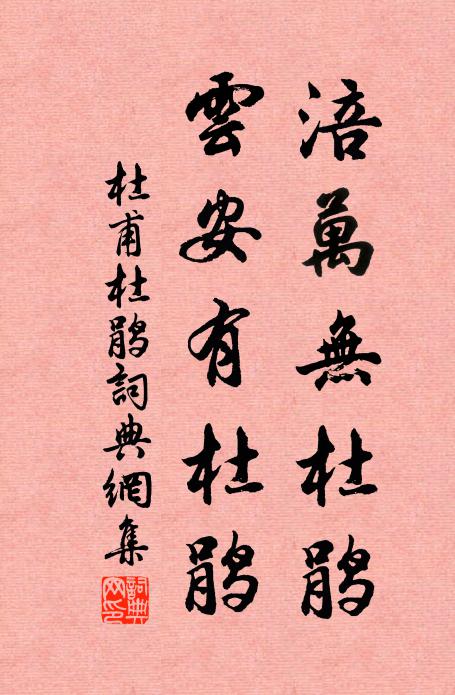 涪萬無杜鵑
雲安有杜鵑
杜甫杜鵑詞典網集
詞典網印